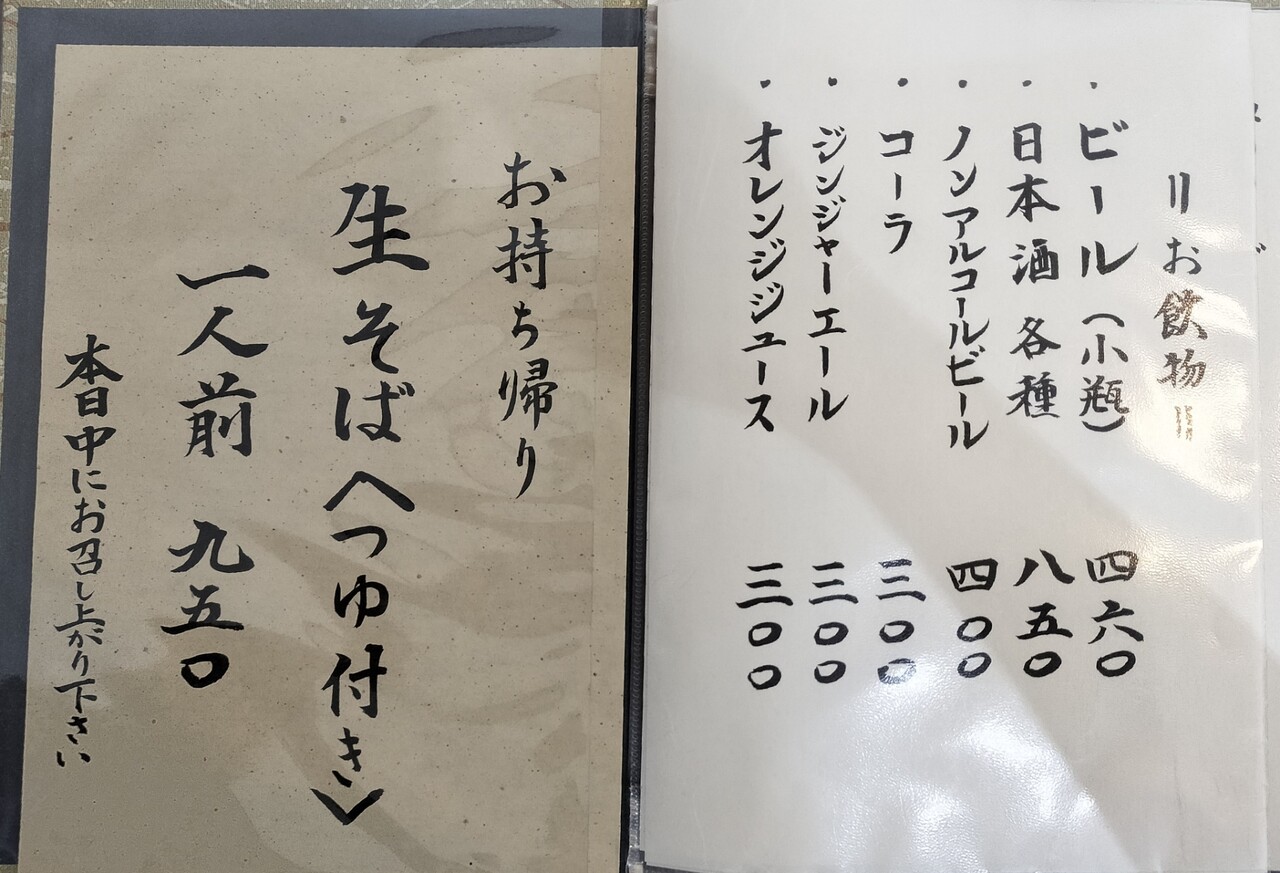 〃お飲物〃
・ビール（小瓶） 四六〇
・日本酒 各種 八五〇
・ノンアルコールビール 四〇〇
・コーラ 三〇〇
・ジンジャーエール 三〇〇
・オレンジジュース 三〇〇
お持ち帰り
生そば〈つゆ付き〉
一人前 九五〇
本日中にお召し上がり下さい